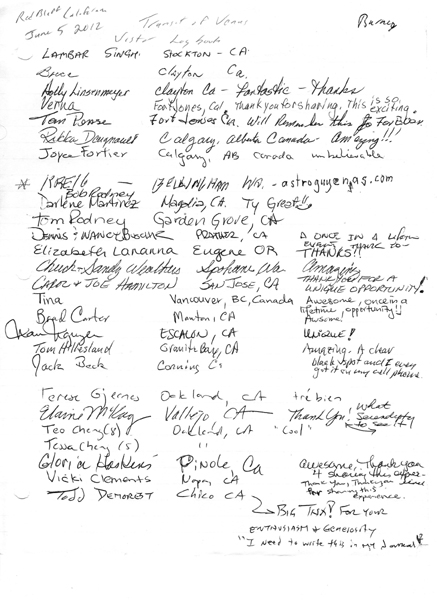 Red Bluff California
June 5 2012
Transit of Venus
Visitor Log book
Burney
LAMBAR SINGH. STOCKTON - CA.
Bruce Clayton Ca,
Holly Linsenmeyer Clayton Ca - Fantastic - Thanks
Verna Fort Jones, Cal Thank you for sharing. This is so exciting.
Tom Ponse Fort Jones Ca. Will Remember this
Calgary, Alberta Canada - Amazing!!!
Joyce Fortier Calgary, AB Canada unbelievable
* KREIG - BELLINGHAM WA. - astroguy@nas.com
Bob Rodney
Darlene Martinez Magalia, Ca. Ty Great!!
Tom Rodney Garden Grove, CA
DENNIS & NANCY PRATHER, CA A ONCE IN A LIFE
Elizabeth Lananna Eugene OR THANKS!!
Chuck & Sandy Spokane Wa Amazing
CAROL & JOE HAMILTON SAN JOSE, CA THANK YOU FOR A UNIQUE OPPORTUNITY!
Tina Vancouver, BC, Canada Awesome, once in a lifetime opportunity!!
Brad Carter Manton, CA Awsome!
Nguyen ESCALON, CA UNIQUE!
Tom Hilbesland Granite Bay, CA Amazing. A clear
black spot and I even got it on my cell phone.
Jack Beck Corning Ca
Terese Gjernes Oakland, CA très bien
Elaine McKay Vallejo CA Thank You! What
to see it!
Teo Cheng (8) Oakland, CA "Cool"
Tessa Cheng (5) "
Gloria Haskins Pinole, Ca awesome, Thank you
4 sharing this
Vicki Clements Napa, CA Thank you, Thank you
for sharing this experience.
Todd DEMOREST Chico CA
BIG TNX! FOR YOUR
ENTHUSIASM & GENEROSITY
"I need to write this in my Journal"